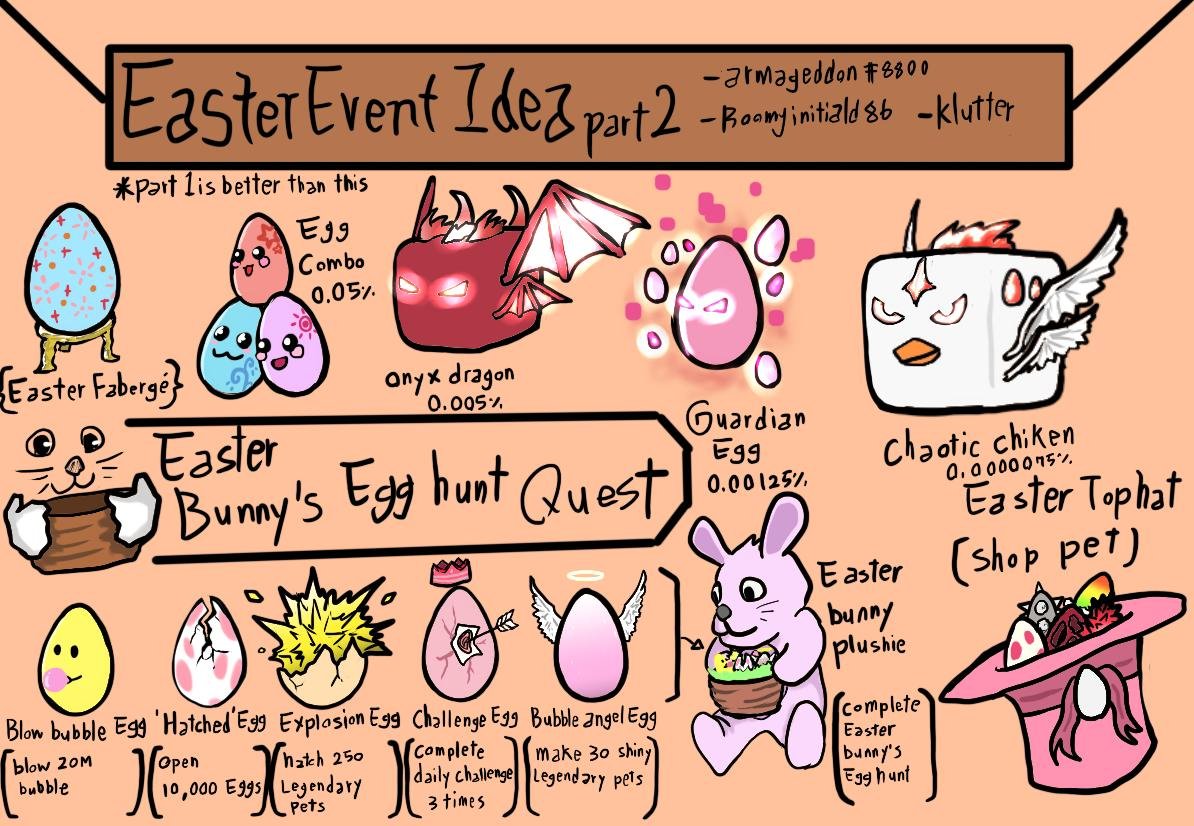 Easter Event Idea part 2
-armageddon #8800
-Roomyinitiald86 -Klutter
*part 1 is better than this
{Easter Fabergé}
Egg
Combo
0.05%
onyx dragon
0.005%
Guardian
Egg
0.00125%
Chaotic chiken
0.0000075%
Easter
Bunny's Egg hunt Quest
Easter Tophat
(shop pet)
Easter
bunny
plushie
[complete
Easter
bunny's
Egg hunt]
Blow bubble Egg
[blow 20M
bubble]
'Hatched' Egg
[Open
10,000 Eggs]
Explosion Egg
[hatch 250
Legendary
pets]
Challenge Egg
[complete
daily challenge
3 times]
Bubble angel Egg
[make 30 shiny
Legendary pets]